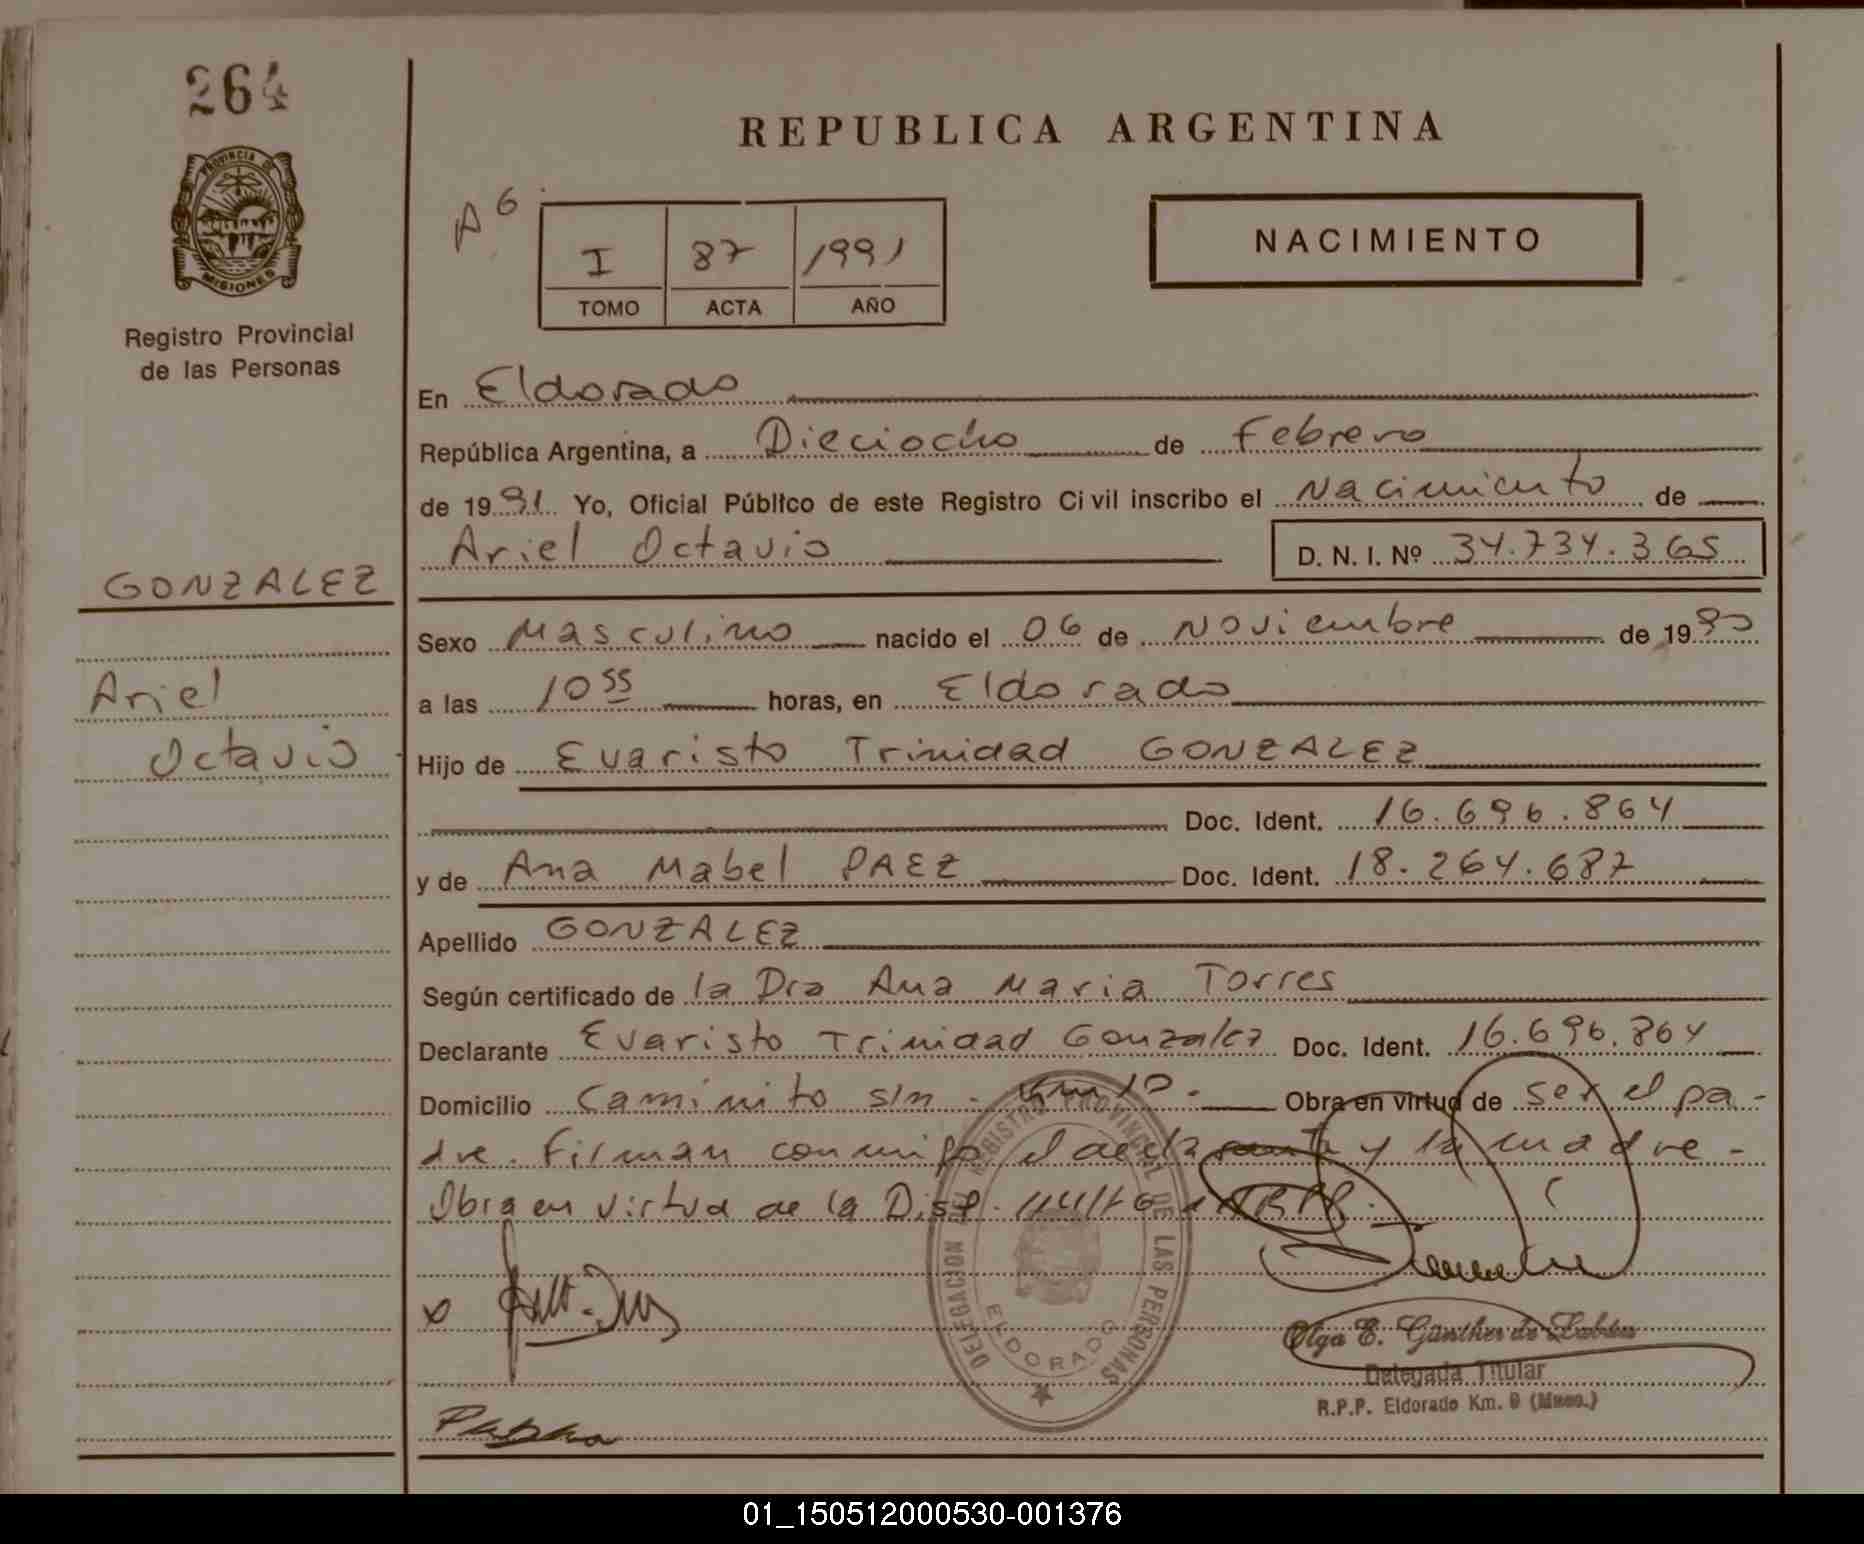 264
PROVINCIA DE
MISIONES
Registro Provincial
de las Personas
REPUBLICA ARGENTINA
A 6
I 87 1991
TOMO ACTA AÑO
NACIMIENTO
En Eldorado
República Argentina, a Dieciocho de Febrero
de 1991 Yo, Oficial Público de este Registro Civil inscribo el Nacimiento de
Ariel Octavio D. N. I. Nº 34.734.365
GONZALEZ
Ariel
Octavio
Sexo Masculino nacido el 06 de Noviembre de 1990
a las 10 55 horas, en Eldorado
Hijo de Evaristo Trinidad GONZALEZ
Doc. Ident. 16.696.864
y de Ana Mabel PAEZ Doc. Ident. 18.264.687
Apellido GONZALEZ
Según certificado de la Dra Ana Maria Torres
Declarante Evaristo Trinidad Gonzalez Doc. Ident. 16.696.864
Domicilio Caminito s/n - Km 10 - Obra en virtud de ser el pa-
dre. Firman conmigo el declarante y la madre -
Obra en virtud de la Disp.
DELEGACION DEL REGISTRO PROVINCIAL DE LAS PERSONAS
ELDORADO
Olga E. Günther de
Delegada Titular
R.P.P. Eldorado Km. 9 (Mnes.)
01_150512000530-001376